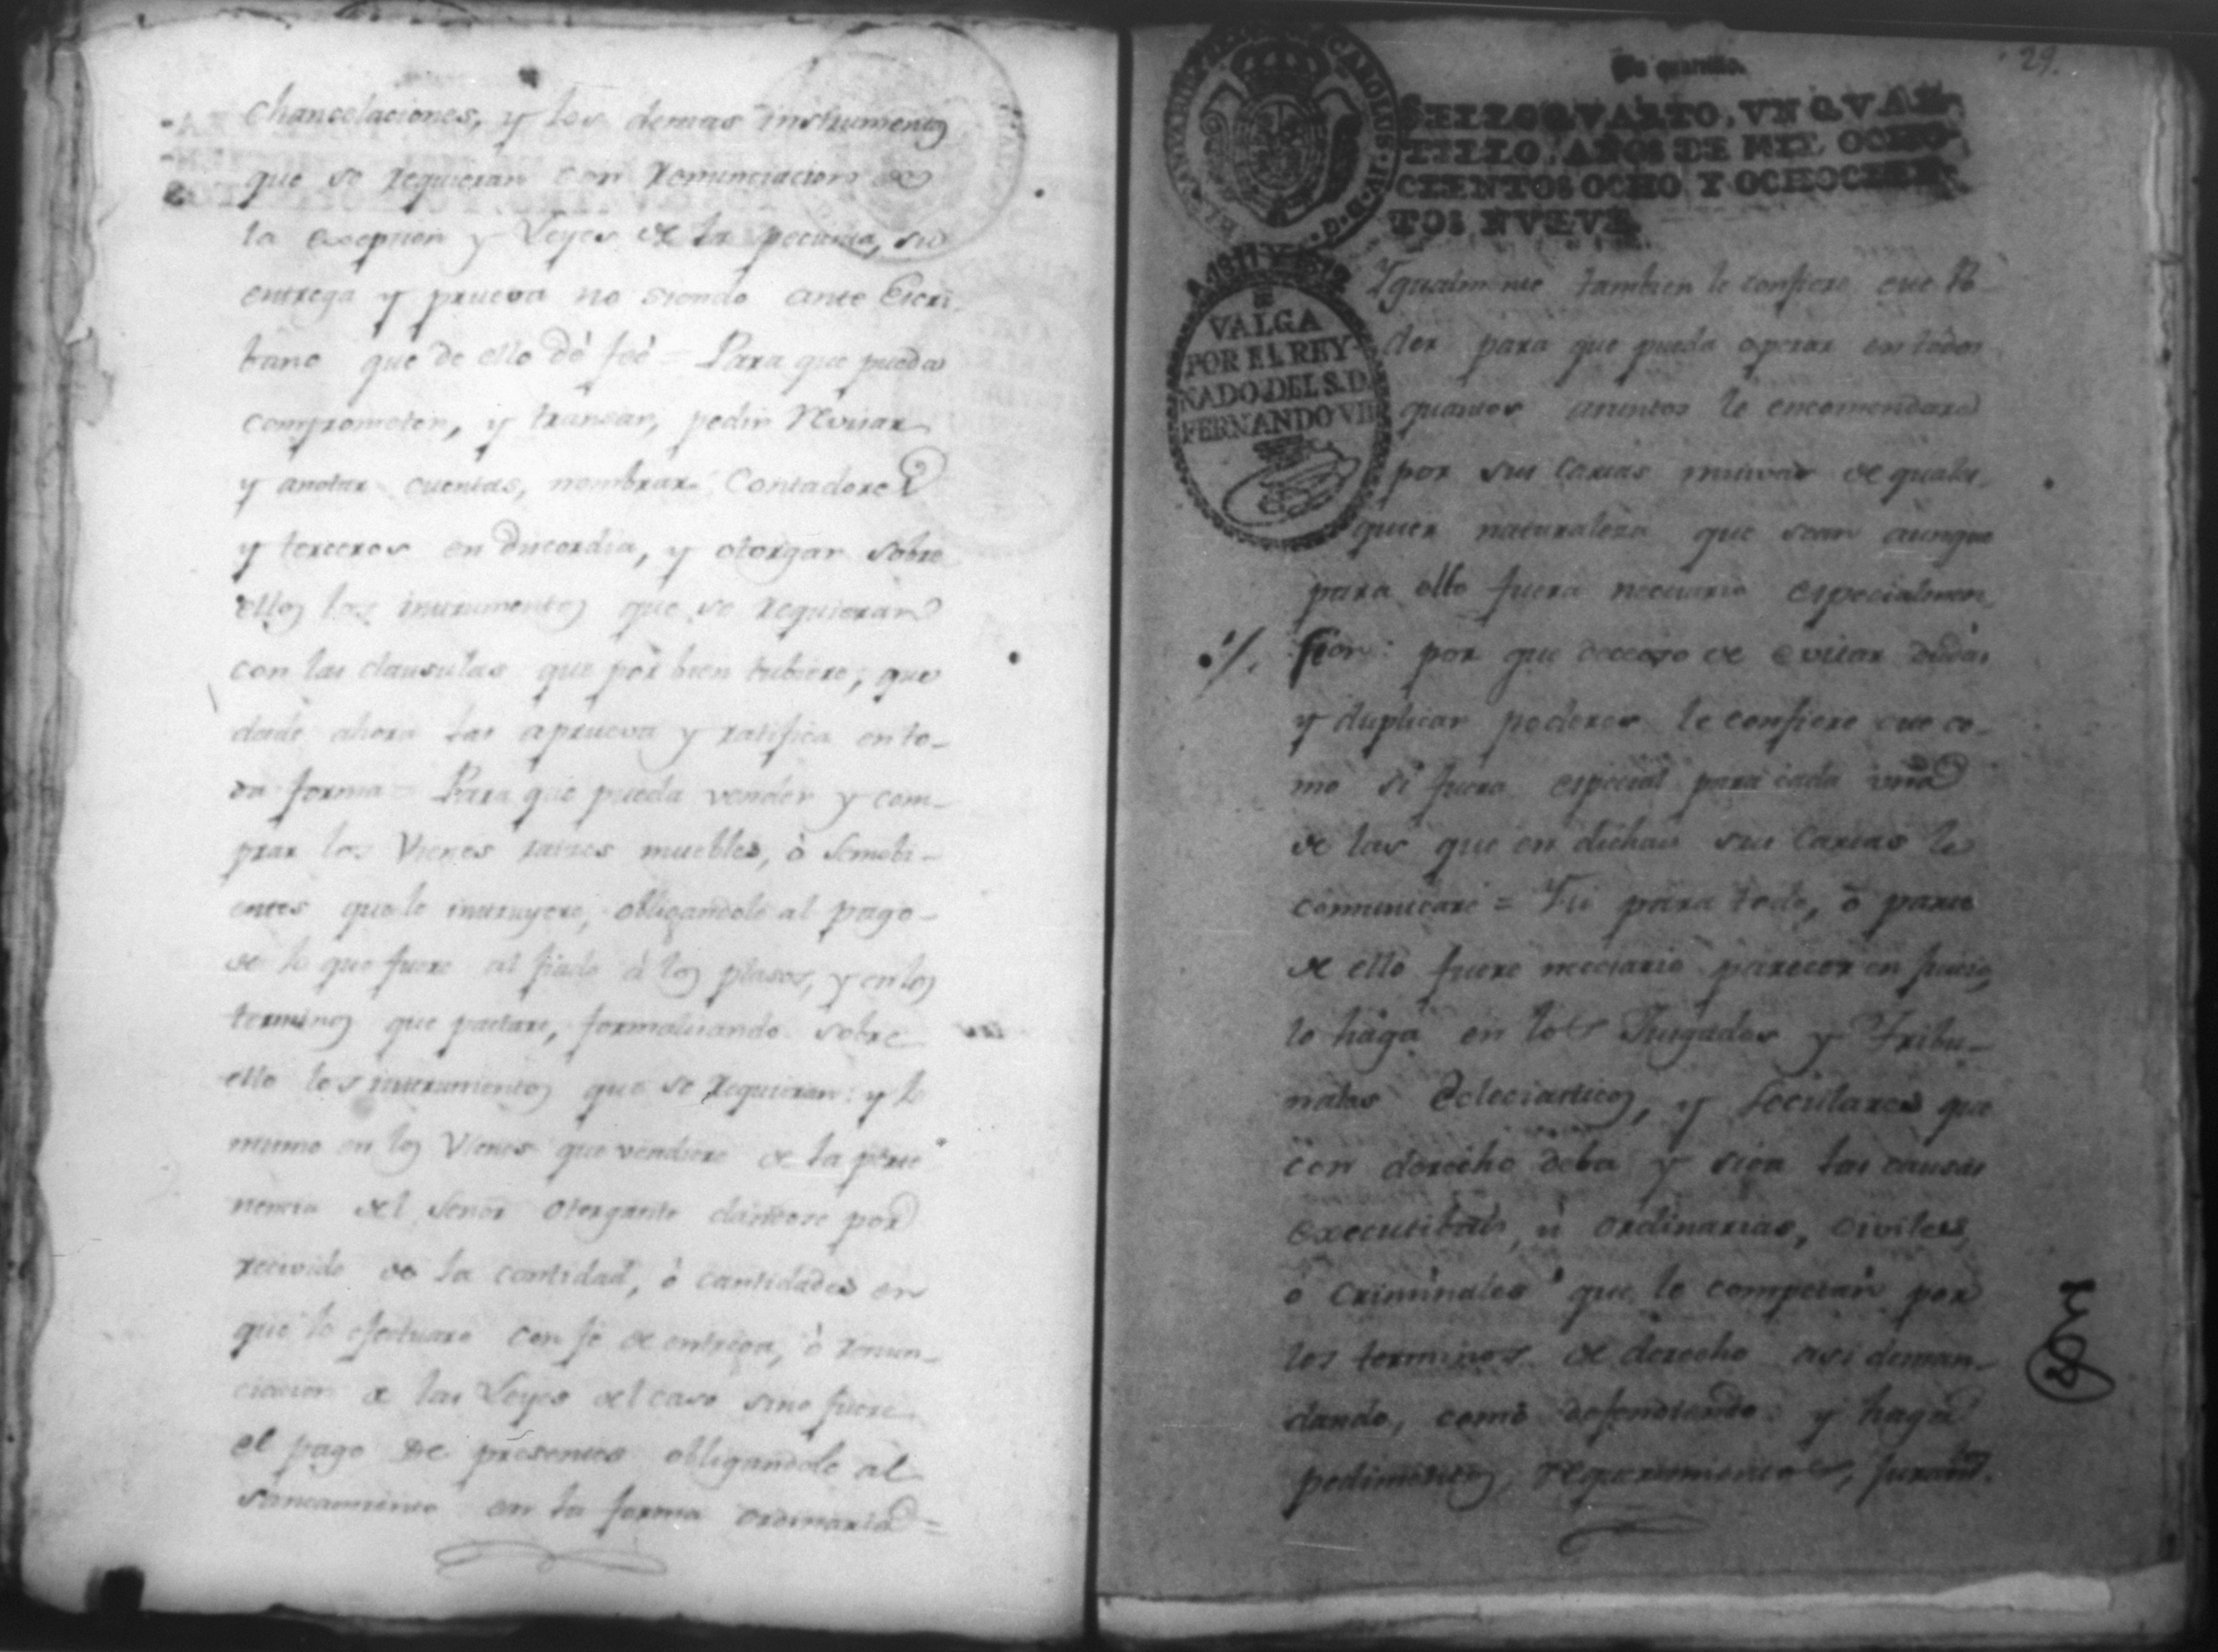 chancelaciones, y los demas instrumentos
que se requieran con renunciacion de
la exepcion y Leyes de la pecunia, su
entrega y prueva no siendo ante Escri-
bano que de ello dé feé = Para que pueda
comprometer, y transar, pedir revisar
y anotar cuentas, nombrar Contadores
y terceros en discordia, y otorgar sobre
ellos los instrumentos que se requieran
con las clausulas que por bien tubiere, que
desde ahora las aprueva y ratifica en to-
da forma = Para que pueda vender y com-
prar los Vienes raises muebles, ò semobi-
entes que le instruyere, obligandole al pago
de lo que fuere al fiado à los plasos, y en los
terminos que pactare, formalisando sobre
ello los instrumentos que se requieran: y lo
mismo en los Vienes que vendiere de la perte
nencia del Señor Otorgante dandose por
recivido de la cantidad, ò cantidades en
que lo efectuare con fé de entrega, ò renun-
ciacion de las Leyes del caso sino fuere
el pago de presente obligandole al
saneamiento en la forma ordinaria =
29.
Un quartillo
SELLO QVARTO, VN QVAR-
TILLO, AÑOS DE MIL OCHO-
CIENTOS OCHO Y OCHOCIEN-
TOS NVEVE.
CAROLUS·IV·D·G·
A. 1811 Y 1812
VALGA
POR EL REY-
NADO DEL S.D.
FERNANDO VII
Ygualmente tambien le confiere este Po-
der para que pueda operar en todos
quantos asuntos le encomendare
por sus Cartas misivas de quales-
quier naturaleza que sean aunque
para ello fuera necesario especialmen-
cion: por que deceoso de evitar dudas
y duplicar poderes le confiere este co-
mo si fuera especial para cada una
de las que en dichas sus Cartas le
comunicare = Y si para todo, ò parte
de ello fuere necesario parecer en juicio,
lo haga en los Jusgados y Tribu-
nales Eclesiasticos, y Seculares que
con derecho deba y siga las causas
executibas, ù ordinarias, civiles,
ò Criminales que le competan por
los terminos de derecho asi deman-
dando, como defendiendo: y haga
pedimentos, requerimientos, juramtos.